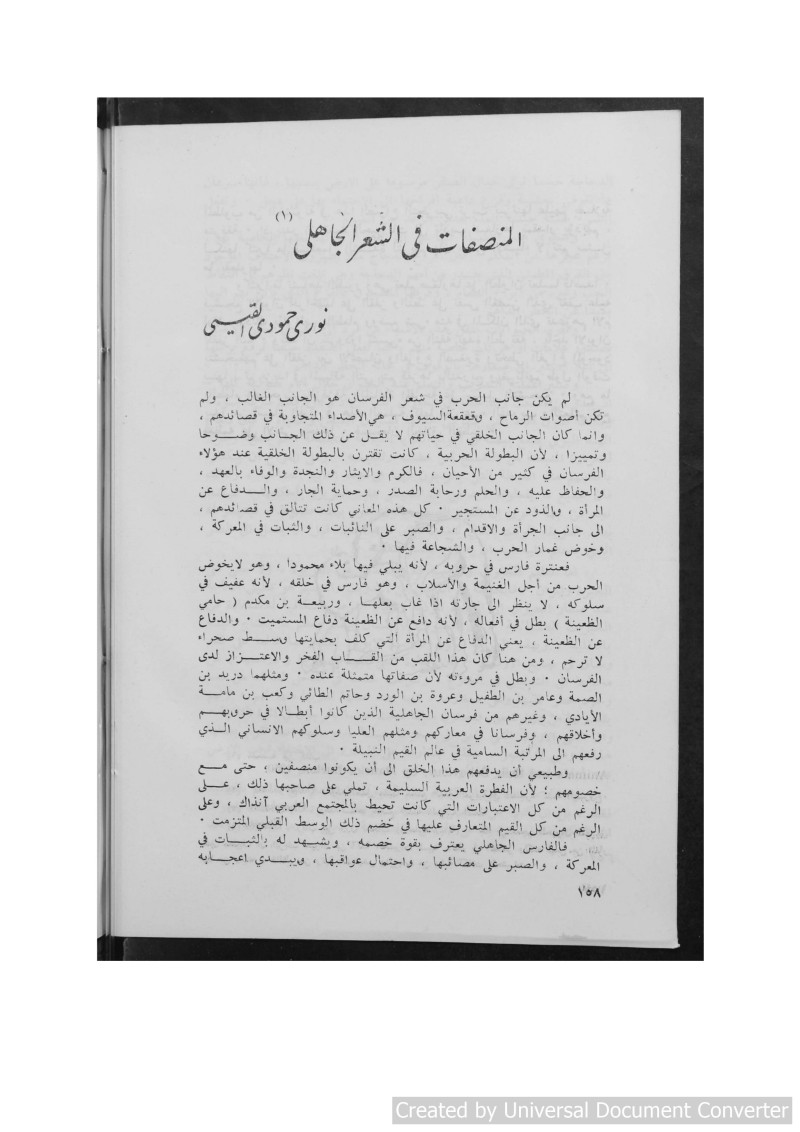 المنصفات في الشعر الجاهلي (١)
نوري حمودي القيسي
لم يكن جانب الحرب في شعر الفرسان هو الجانب الغالب ، ولم
تكن أصوات الرماح ، وقعقعة السيوف ، هي الأصداء المتجاوبة في قصائدهم ،
وانما كان الجانب الخلقي في حياتهم لا يقـل عن ذلك الجـانب وضـوحا
وتمييزا ، لأن البطولة الحربية ، كانت تقترن بالبطولة الخلقية عند هؤلاء
الفرسان في كثير من الأحيان ، فالكرم والايثار والنجدة والوفاء بالعهد ،
والحفاظ عليه ، والحلم ورحابة الصدر ، وحماية الجار ، والـدفاع عن
المرأة ، والذود عن المستجير ٠ كل هذه المعاني كانت تتألق في قصائدهم ،
الى جانب الجرأة والاقدام ، والصبر على النائبات ، والثبات في المعركة ،
وخوض غمار الحرب ، والشجاعة فيها ٠
فعنترة فارس في حروبه ، لأنه يبلي فيها بلاء محمودا ، وهو لايخوض
الحرب من أجل الغنيمة والأسلاب ، وهو فارس في خلقه ، لأنه عفيف في
سلوكه ، لا ينظر الى جارته اذا غاب بعلهـا ، وربيعـة بن مكدم ( حامي
الظعينة ) بطل في أفعاله ، لأنه دافع عن الظعينة دفاع المستميت ٠ والدفاع
عن الظعينة ، يعني الدفاع عن المرأة التي كلف بحمايتها وسـط صحراء
لا ترحم ، ومن هنا كان هذا اللقب من القـاب الفخر والاعتـزاز لدى
الفرسان ٠ وبطل في مروءته لأن صفاتها متمثلة عنده ٠ ومثلهما دريد بن
الصمة وعامر بن الطفيل وعروة بن الورد وحاتم الطائي وكعب بن مامـة
الأيادي ، وغيرهم من فرسان الجاهلية الذين كانوا أبطـالا في حروبهـم
وأخلاقهم ، وفرسانا في معاركهم ومثلهم العليا وسلوكهم الانساني الـذي
رفعهم الى المرتبة السامية في عالم القيم النبيلة ٠
وطبيعي أن يدفعهم هذا الخلق الى أن يكونوا منصفين ؛ حتى مـع
خصومهم ؛ لأن الفطرة العربية السليمة ، تملي على صاحبها ذلك ، عـلى
الرغم من كل الاعتبارات التي كانت تحيط بالمجتمع العربي آنذاك ، وعلى
الرغم من كل القيم المتعارف عليها في خضم ذلك الوسط القبلي المتزمت ٠
فالفارس الجاهلي يعترف بقوة خصمه ، ويشـهد له بالثبـات في
المعركة ، والصبر على مصائبها ، واحتمال عواقبها ، ويبـدي اعجـابه
١٥٨
Created by Universal Document Converter